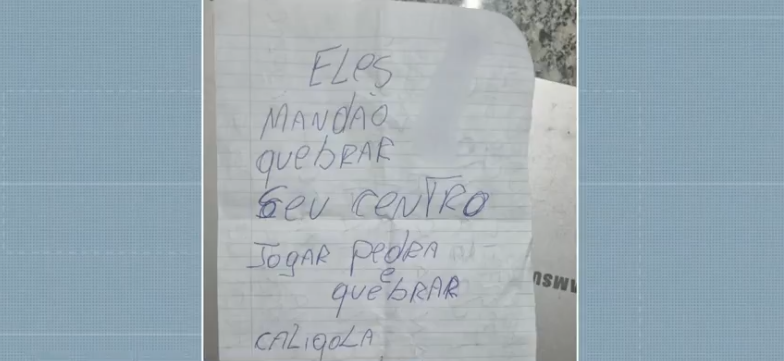 ELeS
MANDÃO
queBRAR
SeU CeNTRO
JOGAR PedRA
e
queBRAR
CALIGOLA